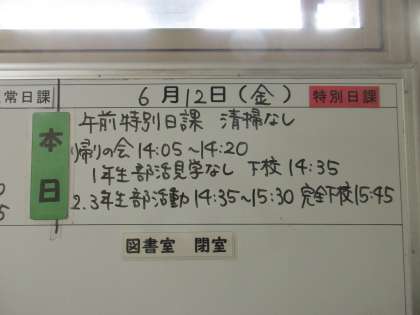 常日課 6月12日(金) 特別日課
本日
午前特別日課 清掃なし
帰りの会 14:05～14:20
1年生部活見学なし 下校 14:35
2.3年生部活動 14:35～15:30 完全下校15:45
図書室 閉室